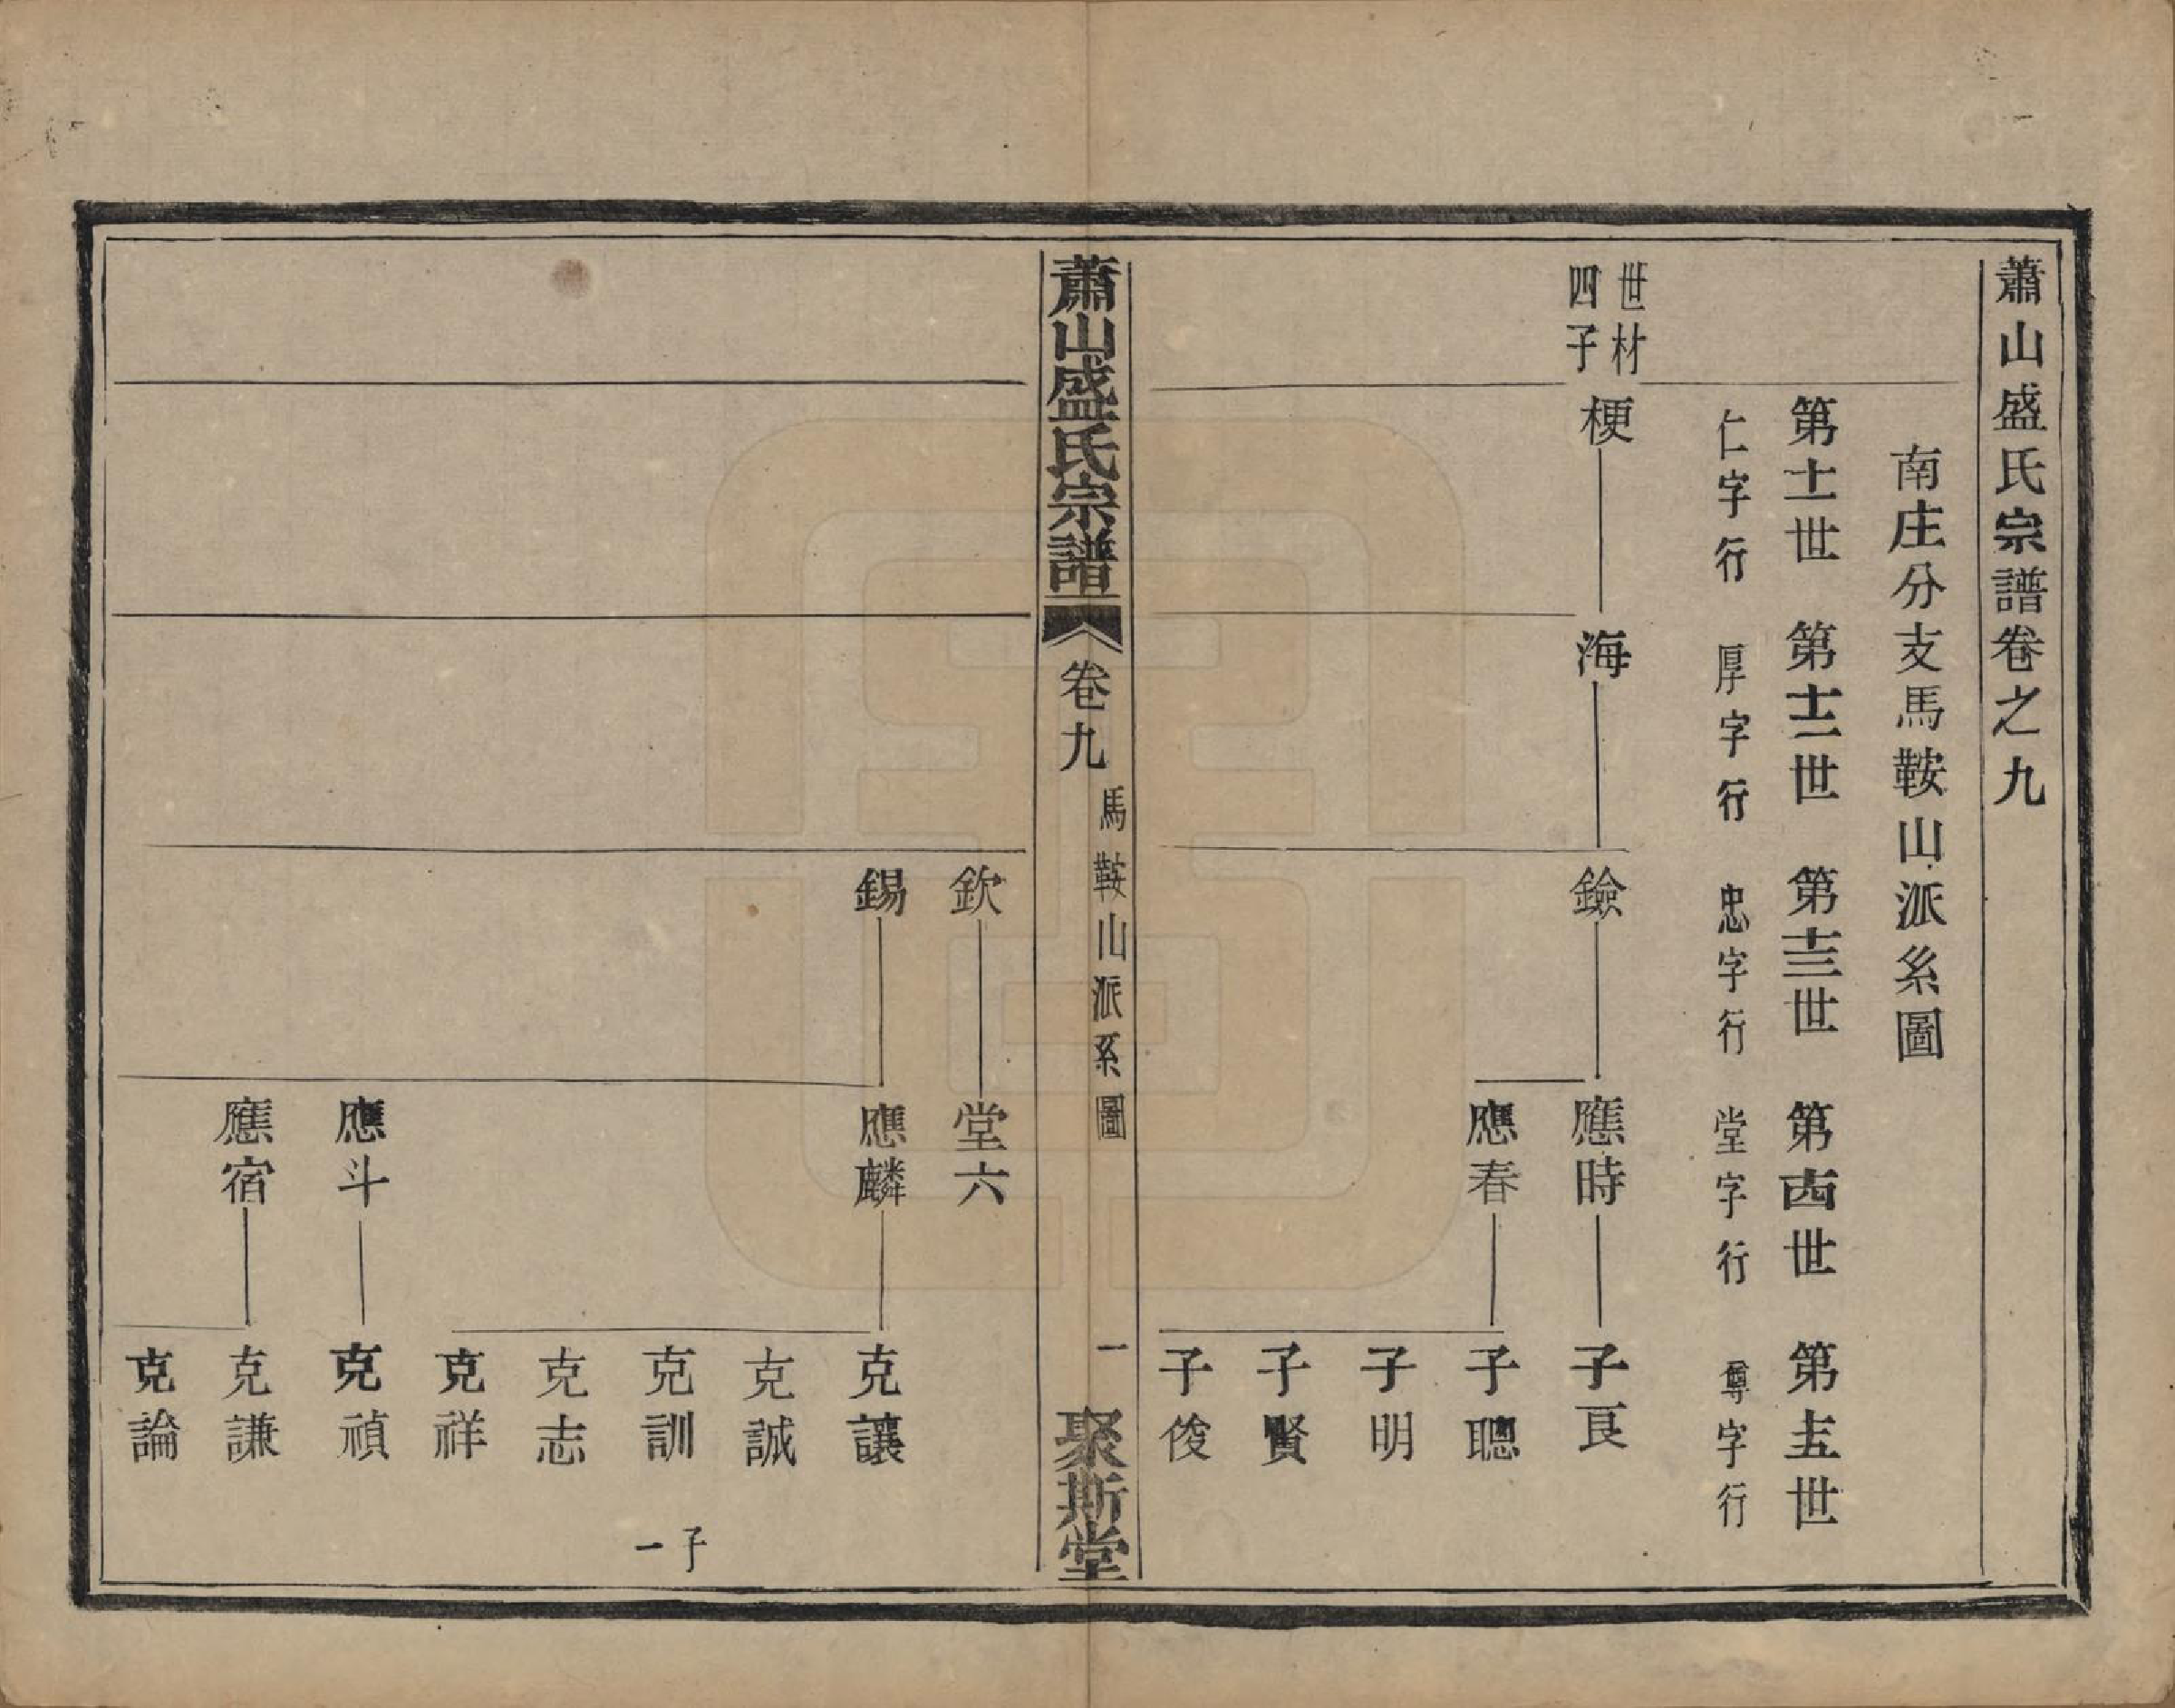 蕭山盛氏宗譜卷之九
南庄分支馬鞍山派系圖
第十一世 第十二世 第十三世 第十四世 第十五世
仁字行 厚字行 忠字行 堂字行 尊字行
世材
四子
梗 海 鐱 應時 子良
應春 子聰
子明
子賢
子俊
蕭山盛氏宗譜 卷九 馬鞍山派系圖 一 聚斯堂
欽 堂六
錫 應麟 克讓
克誠
克訓 子一
克志
克祥
應斗 克禎
應宿 克謙
克論